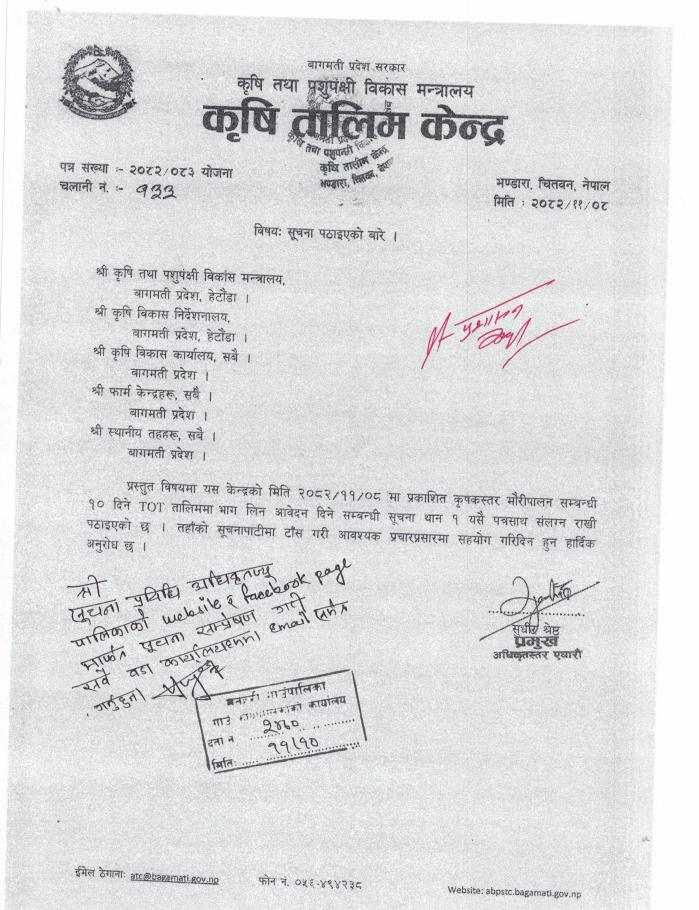 बागमती प्रदेश सरकार
कृषि तथा पशुपंक्षी विकास मन्त्रालय
कृषि तालिम केन्द्र
कृषि तथा पशुपन्छी विकास
कृषि तालिम केन्द्र
भण्डारा, चितवन, नेपाल
पत्र संख्या :- २०८२/०८३ योजना
चलानी नं. :- १३३
भण्डारा, चितवन, नेपाल
मिति : २०८२/११/०८
विषय: सूचना पठाइएको बारे ।
श्री कृषि तथा पशुपंक्षी विकास मन्त्रालय,
बागमती प्रदेश, हेटौंडा ।
श्री कृषि विकास निर्देशनालय,
बागमती प्रदेश, हेटौंडा ।
श्री कृषि विकास कार्यालय, सबै ।
बागमती प्रदेश ।
श्री फार्म केन्द्रहरू, सबै ।
बागमती प्रदेश ।
श्री स्थानीय तहहरू, सबै ।
बागमती प्रदेश ।
प्रस्तुत विषयमा यस केन्द्रको मिति २०८२/११/०८ मा प्रकाशित कृषकस्तर मौरीपालन सम्बन्धी
१० दिने TOT तालिममा भाग लिन आवेदन दिने सम्बन्धी सूचना थान १ यसै पत्रसाथ संलग्न राखी
पठाइएको छ । तहाँको सूचनापाटीमा टाँस गरी आवश्यक प्रचारप्रसारमा सहयोग गरिदिन हुन हार्दिक
अनुरोध छ ।
श्री
सूचना प्रविधि अधिकृतज्यू
पालिकाको website र facebook page
मार्फत सूचना सम्प्रेषण गरी
सबै वडा कार्यालयहरुमा email समेत
गर्नुहुन।
सुधीर श्रेष्ठ
प्रमुख
अधिकृतस्तर एघारौं
गाउँपालिका
गाउँ कार्यपालिकाको कार्यालय
दर्ता नं २४६०
मिति: ११/१०
ईमेल ठेगाना: atc@bagamati.gov.np
फोन नं. ०५६-४९४२३८
Website: abpstc.bagamati.gov.np